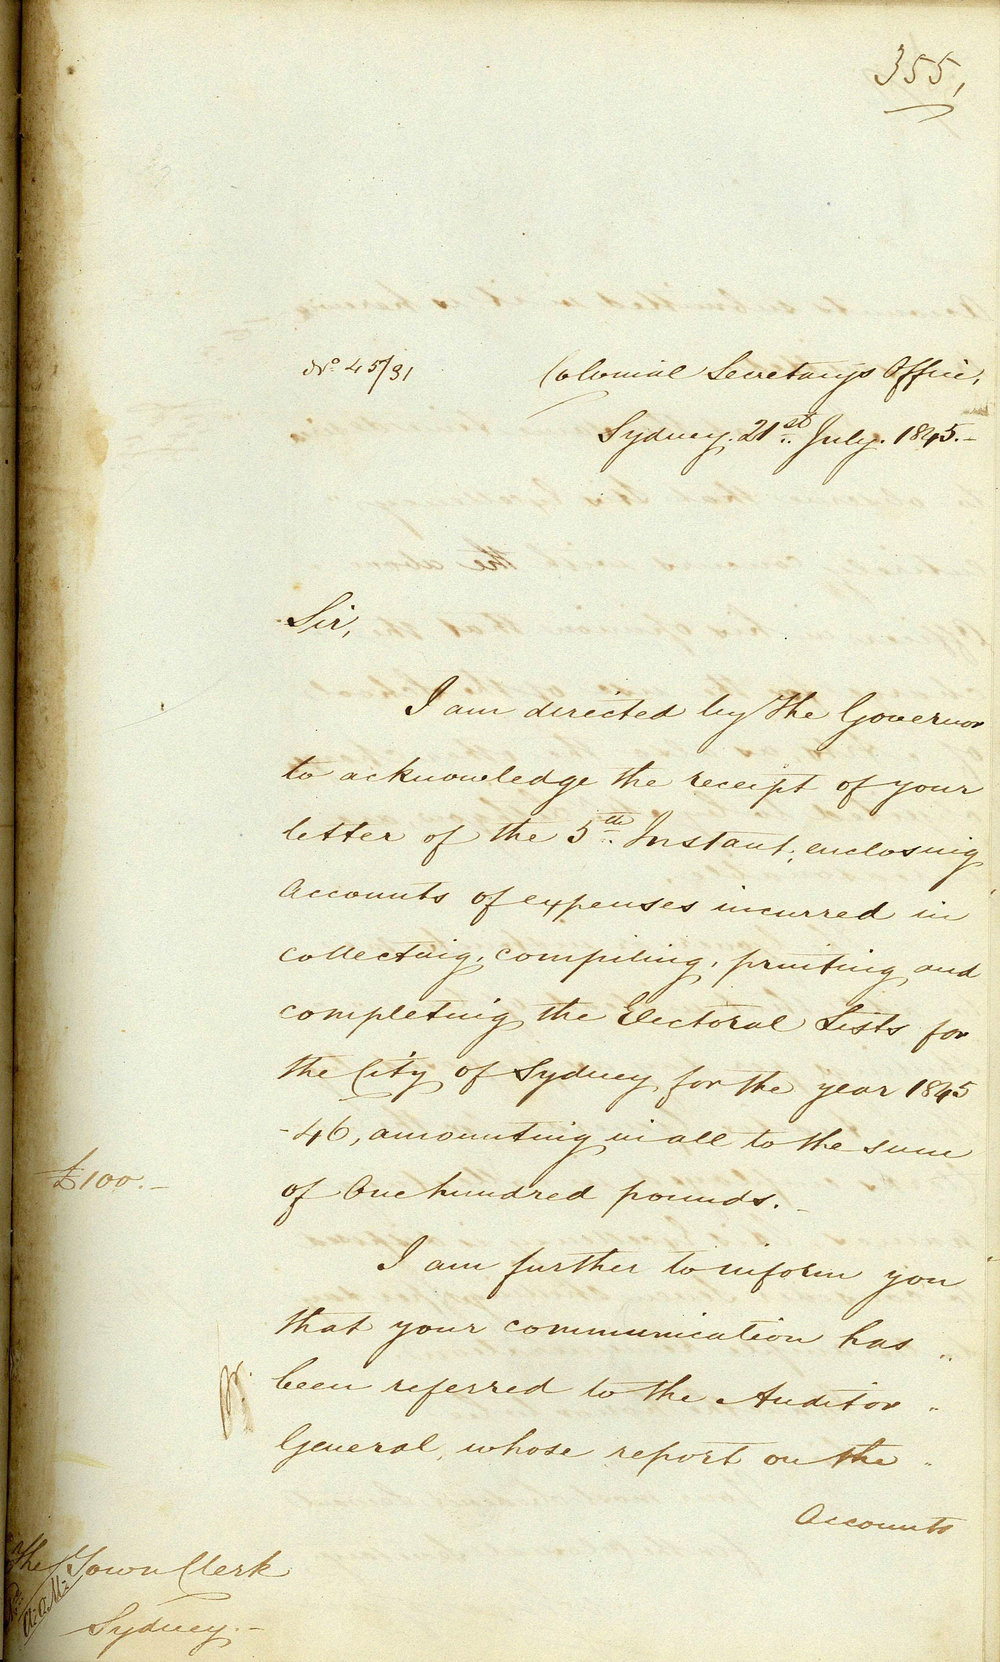 355,
No. 45/31
Colonial Secretary's Office,
Sydney. 21st. July. 1845.-
Sir,
I am directed by the Governor
to acknowledge the receipt of your
letter of the 5th. Instant, enclosing
Accounts of expenses incurred in
collecting, compiling, printing and
completing the Electoral Lists for
the City of Sydney for the year 1845
-46, amounting in all to the sum
£100.-
of One hundred pounds.
I am further to inform you
that your communication has
been referred to the Auditor
General, whose report on the
Accounts
The Town Clerk
Sydney.-